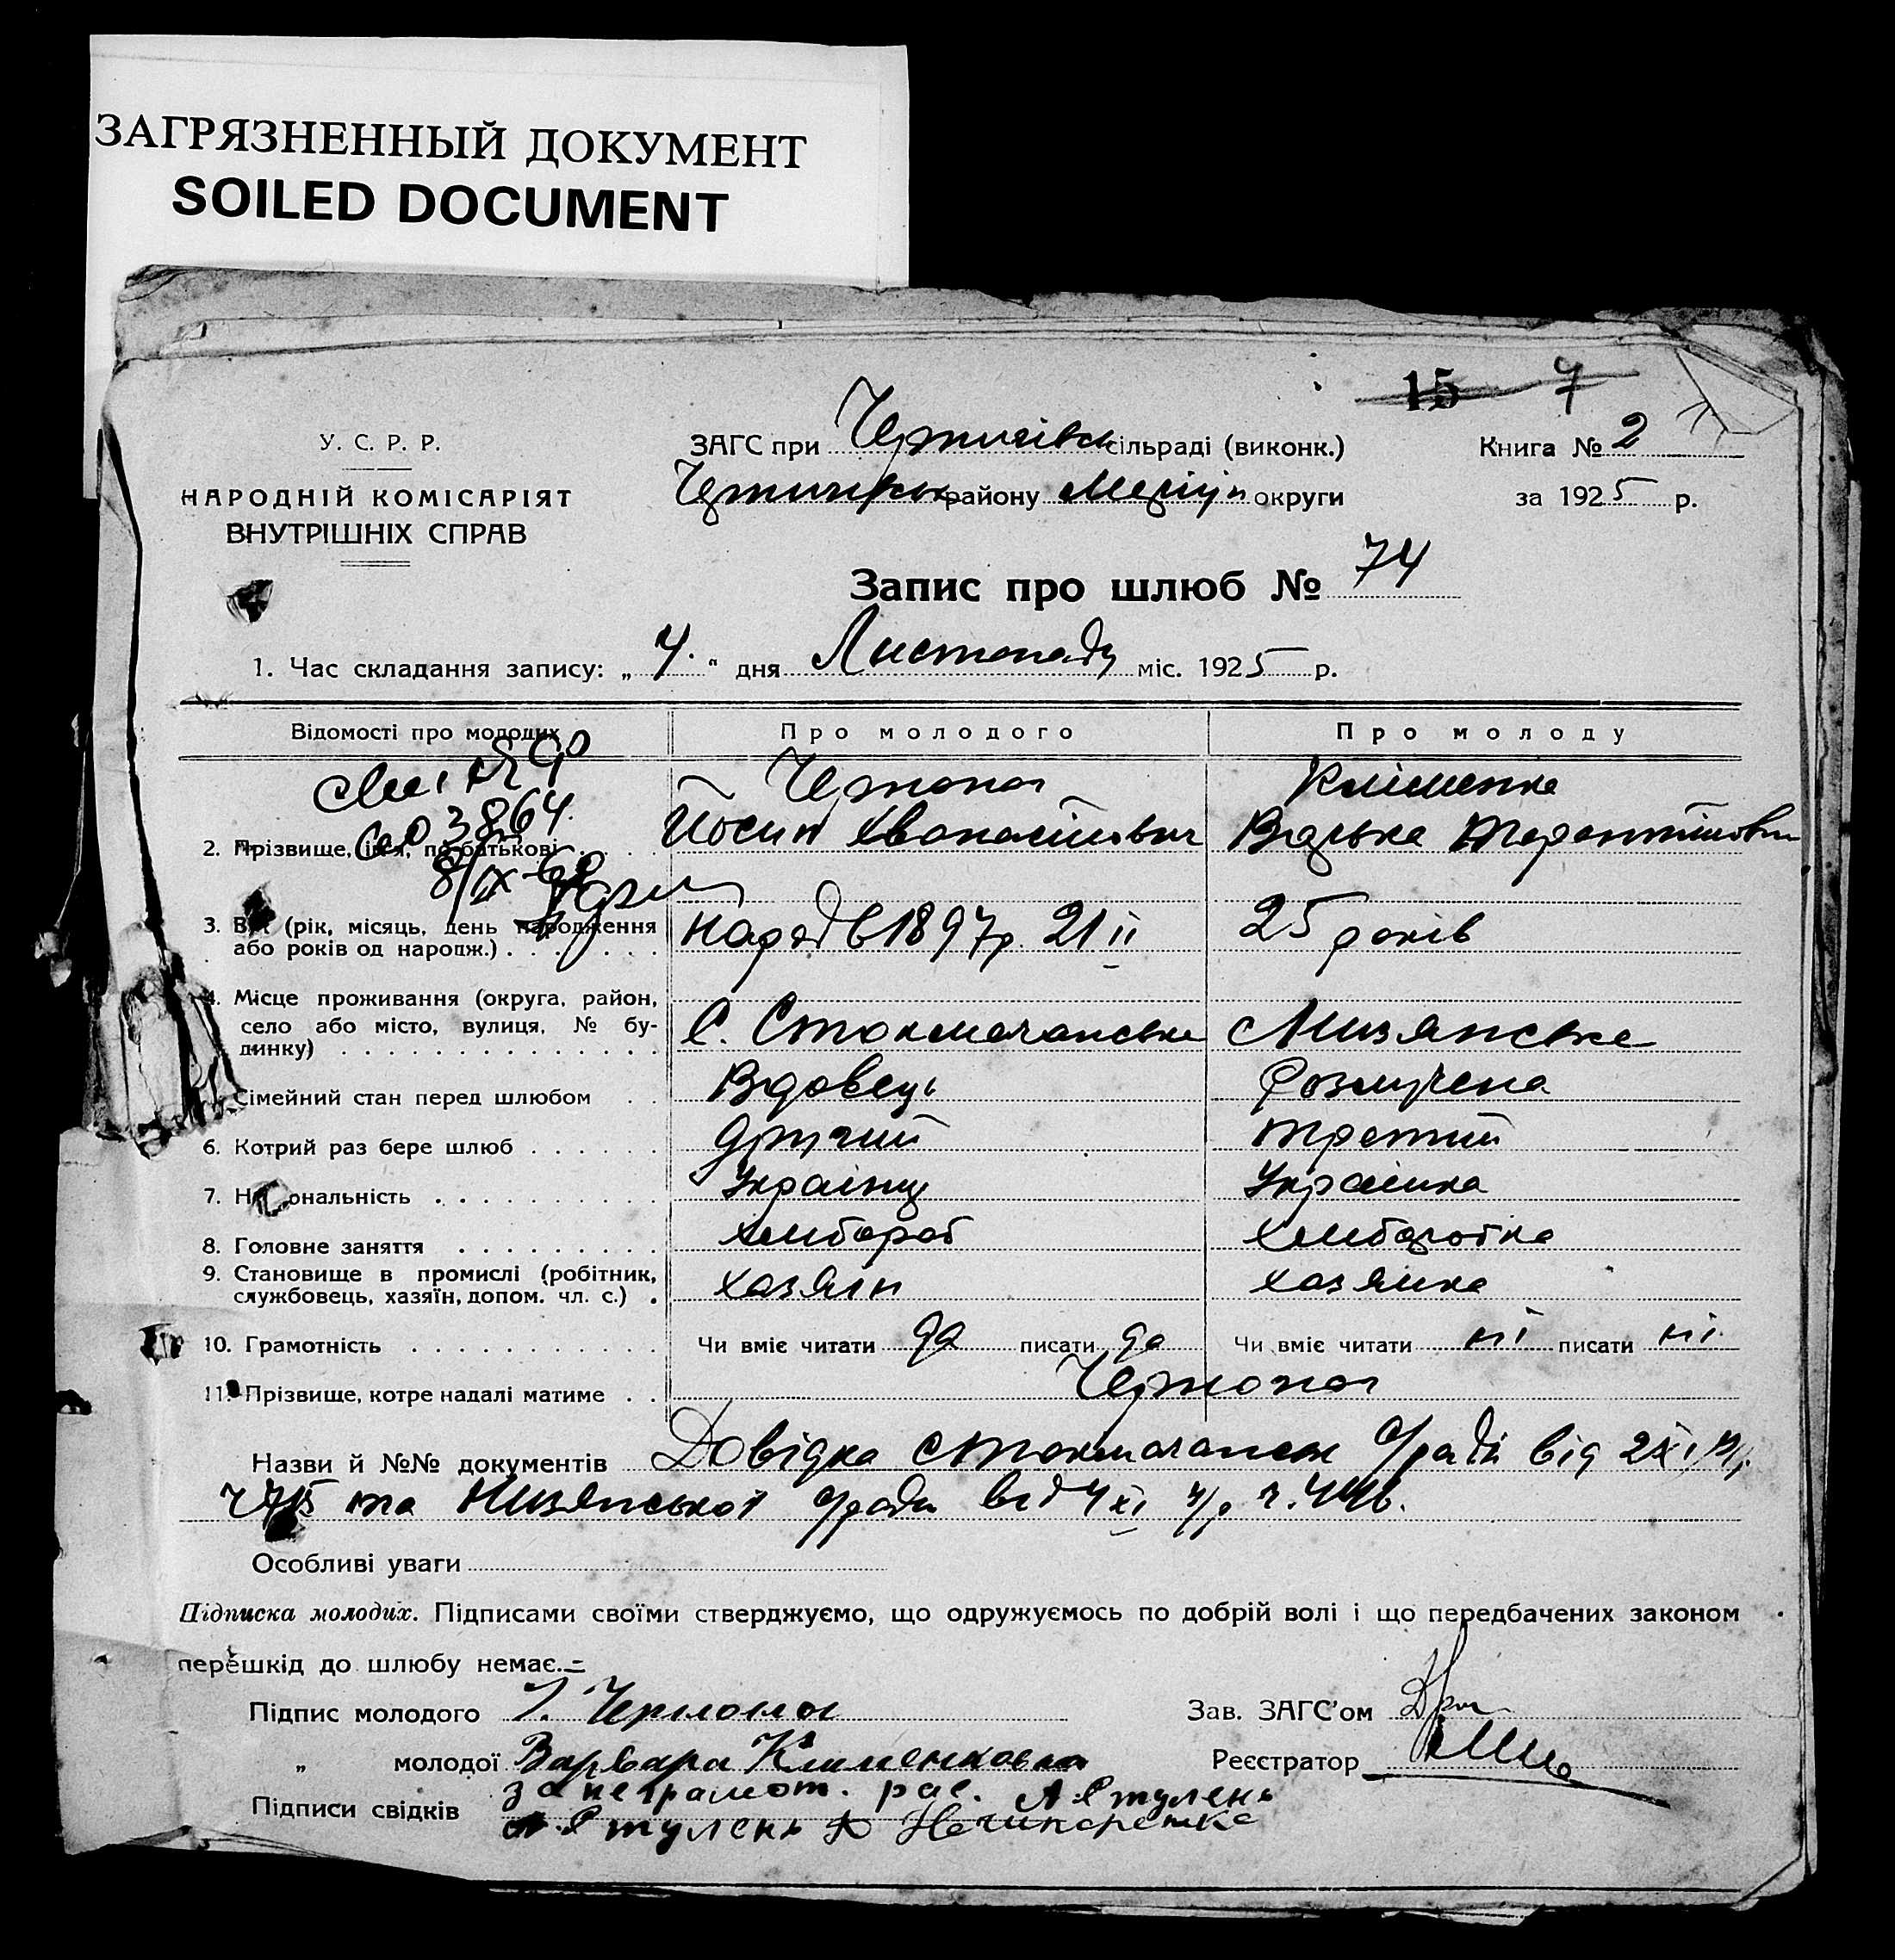 ЗАГРЯЗНЕННЫЙ ДОКУМЕНТ
SOILED DOCUMENT
15 7
У. С. Р. Р.
НАРОДНІЙ КОМІСАРІЯТ
ВНУТРІШНІХ СПРАВ
ЗАГС при сільраді (виконк.)
району округи
Книга № 2
за 1925 р.
Запис про шлюб № 74
1. Час складання запису: „ 4 " дня Листопаду міс. 1925 р.
Відомості про молодих Про молодого Про молоду
3864.
2. Прізвище, ім'я, по батькові Йосип
3. Вік (рік, місяць, день народження
або років од народж.) Народ в 1897 р. 21 II 25 років
4. Місце проживання (округа, район,
село або місто, вулиця, № бу-
динку) С. Стокмачанське
Сімейний стан перед шлюбом Вдовець Розлучена
6. Котрий раз бере шлюб Другий третий
7. Національність Українец Українка
8. Головне заняття хлибороб хлиборобка
9. Становище в промислі (робітник,
службовець, хазяїн, допом. чл. с.) хазяїн хазяйка
10. Грамотність Чи вміє читати да писати да Чи вміє читати ні писати ні
11. Прізвище, котре надалі матиме
Назви й №№ документів Довідка с/ради від 2 XI
та с/ради від 4 XI
Особливі уваги
Підписка молодих. Підписами своїми стверджуємо, що одружуємось по добрій волі і що передбачених законом
перешкід до шлюбу немає.
Підпис молодого
Зав. ЗАГС'ом
„ молодої Варвара Клименкова
Реєстратор
за неграмот. рас. А Ятулень
Підписи свідків А. Ятулень